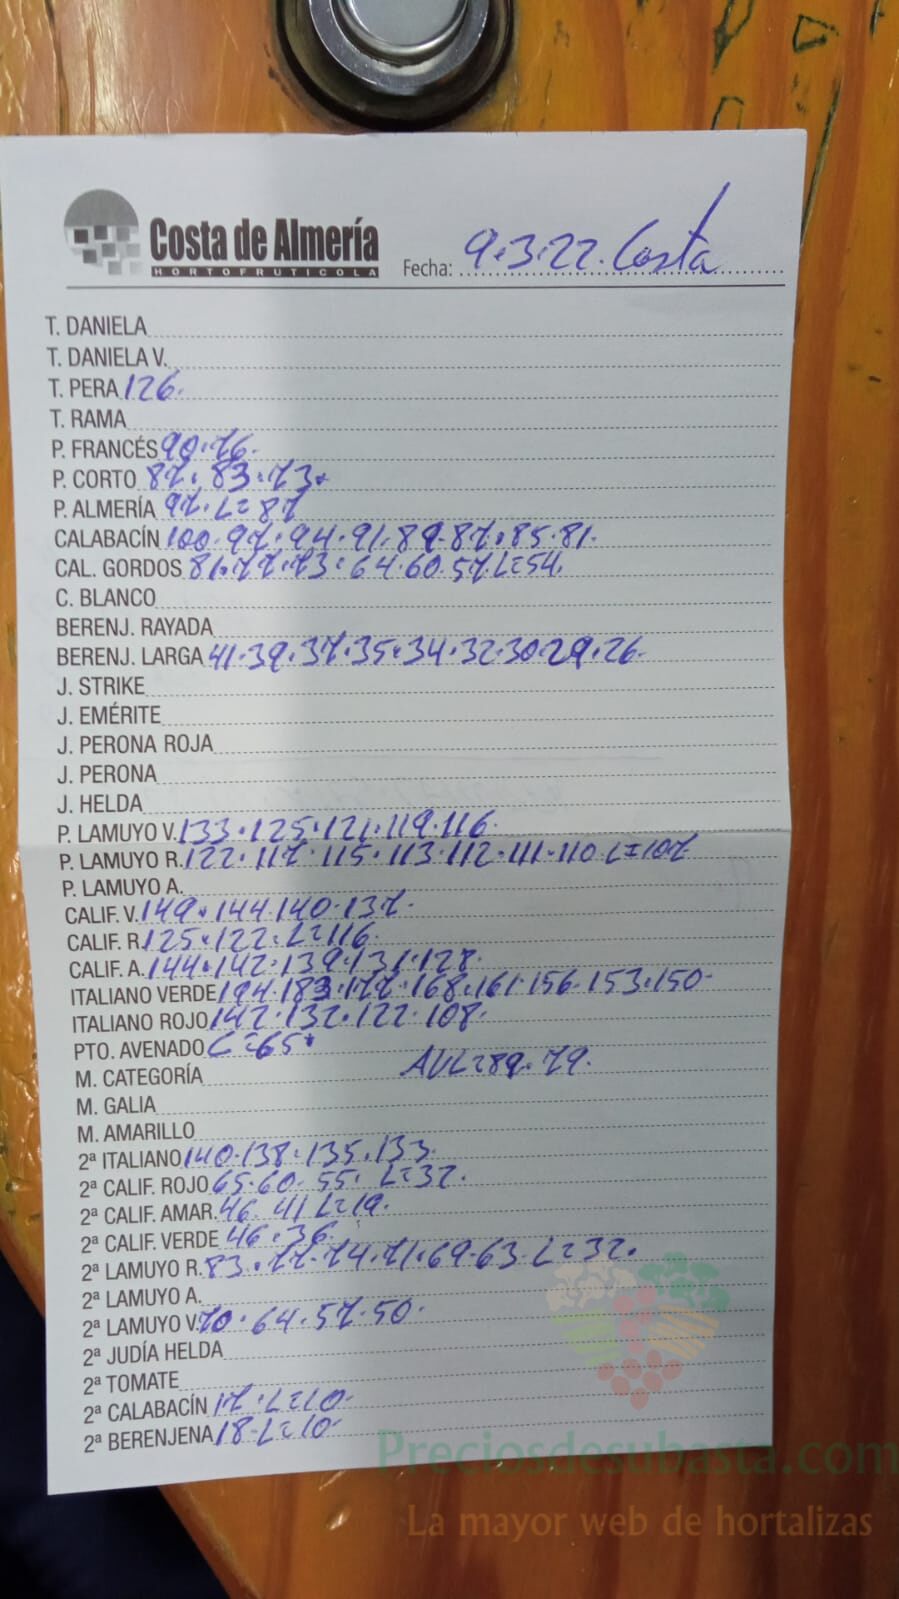 Costa de Almería
HORTOFRUTICOLA
Fecha: 9.3.22. Costa
T. DANIELA
T. DANIELA V.
T. PERA 126.
T. RAMA
P. FRANCÉS 90.76.
P. CORTO 87. 83. 73.
P. ALMERÍA 97. L=87
CALABACÍN 100. 97. 94. 91. 89. 87. 85. 81.
CAL. GORDOS 81. 77. 73. 64. 60. 57. L=54.
C. BLANCO
BERENJ. RAYADA
BERENJ. LARGA 41. 39. 37. 35. 34. 32. 30. 29. 26.
J. STRIKE
J. EMÉRITE
J. PERONA ROJA
J. PERONA
J. HELDA
P. LAMUYO V. 133. 125. 121. 119. 116.
P. LAMUYO R. 122. 117. 115. 113. 112. 111. 110 L=107
P. LAMUYO A.
CALIF. V. 149. 144. 140. 137.
CALIF. R. 125. 122. L=116.
CALIF. A. 144. 142. 139. 131. 128.
ITALIANO VERDE 194. 183. 177. 168. 161. 156. 153. 150.
ITALIANO ROJO 142. 132. 122. 108.
PTO. AVENADO C=65.
AVL=89. 79.
M. CATEGORÍA
M. GALIA
M. AMARILLO
2ª ITALIANO 140. 138. 135. 133.
2ª CALIF. ROJO 65. 60. 55. L=32.
2ª CALIF. AMAR. 46. 41 L=19.
2ª CALIF. VERDE 46. 36.
2ª LAMUYO R. 83. 77. 74. 71. 69. 63. L=32.
2ª LAMUYO A.
2ª LAMUYO V. 70. 64. 57. 50.
2ª JUDÍA HELDA
2ª TOMATE
2ª CALABACÍN 17. L=10.
2ª BERENJENA 18. L=10.
Preciosdesubasta.com
La mayor web de hortalizas